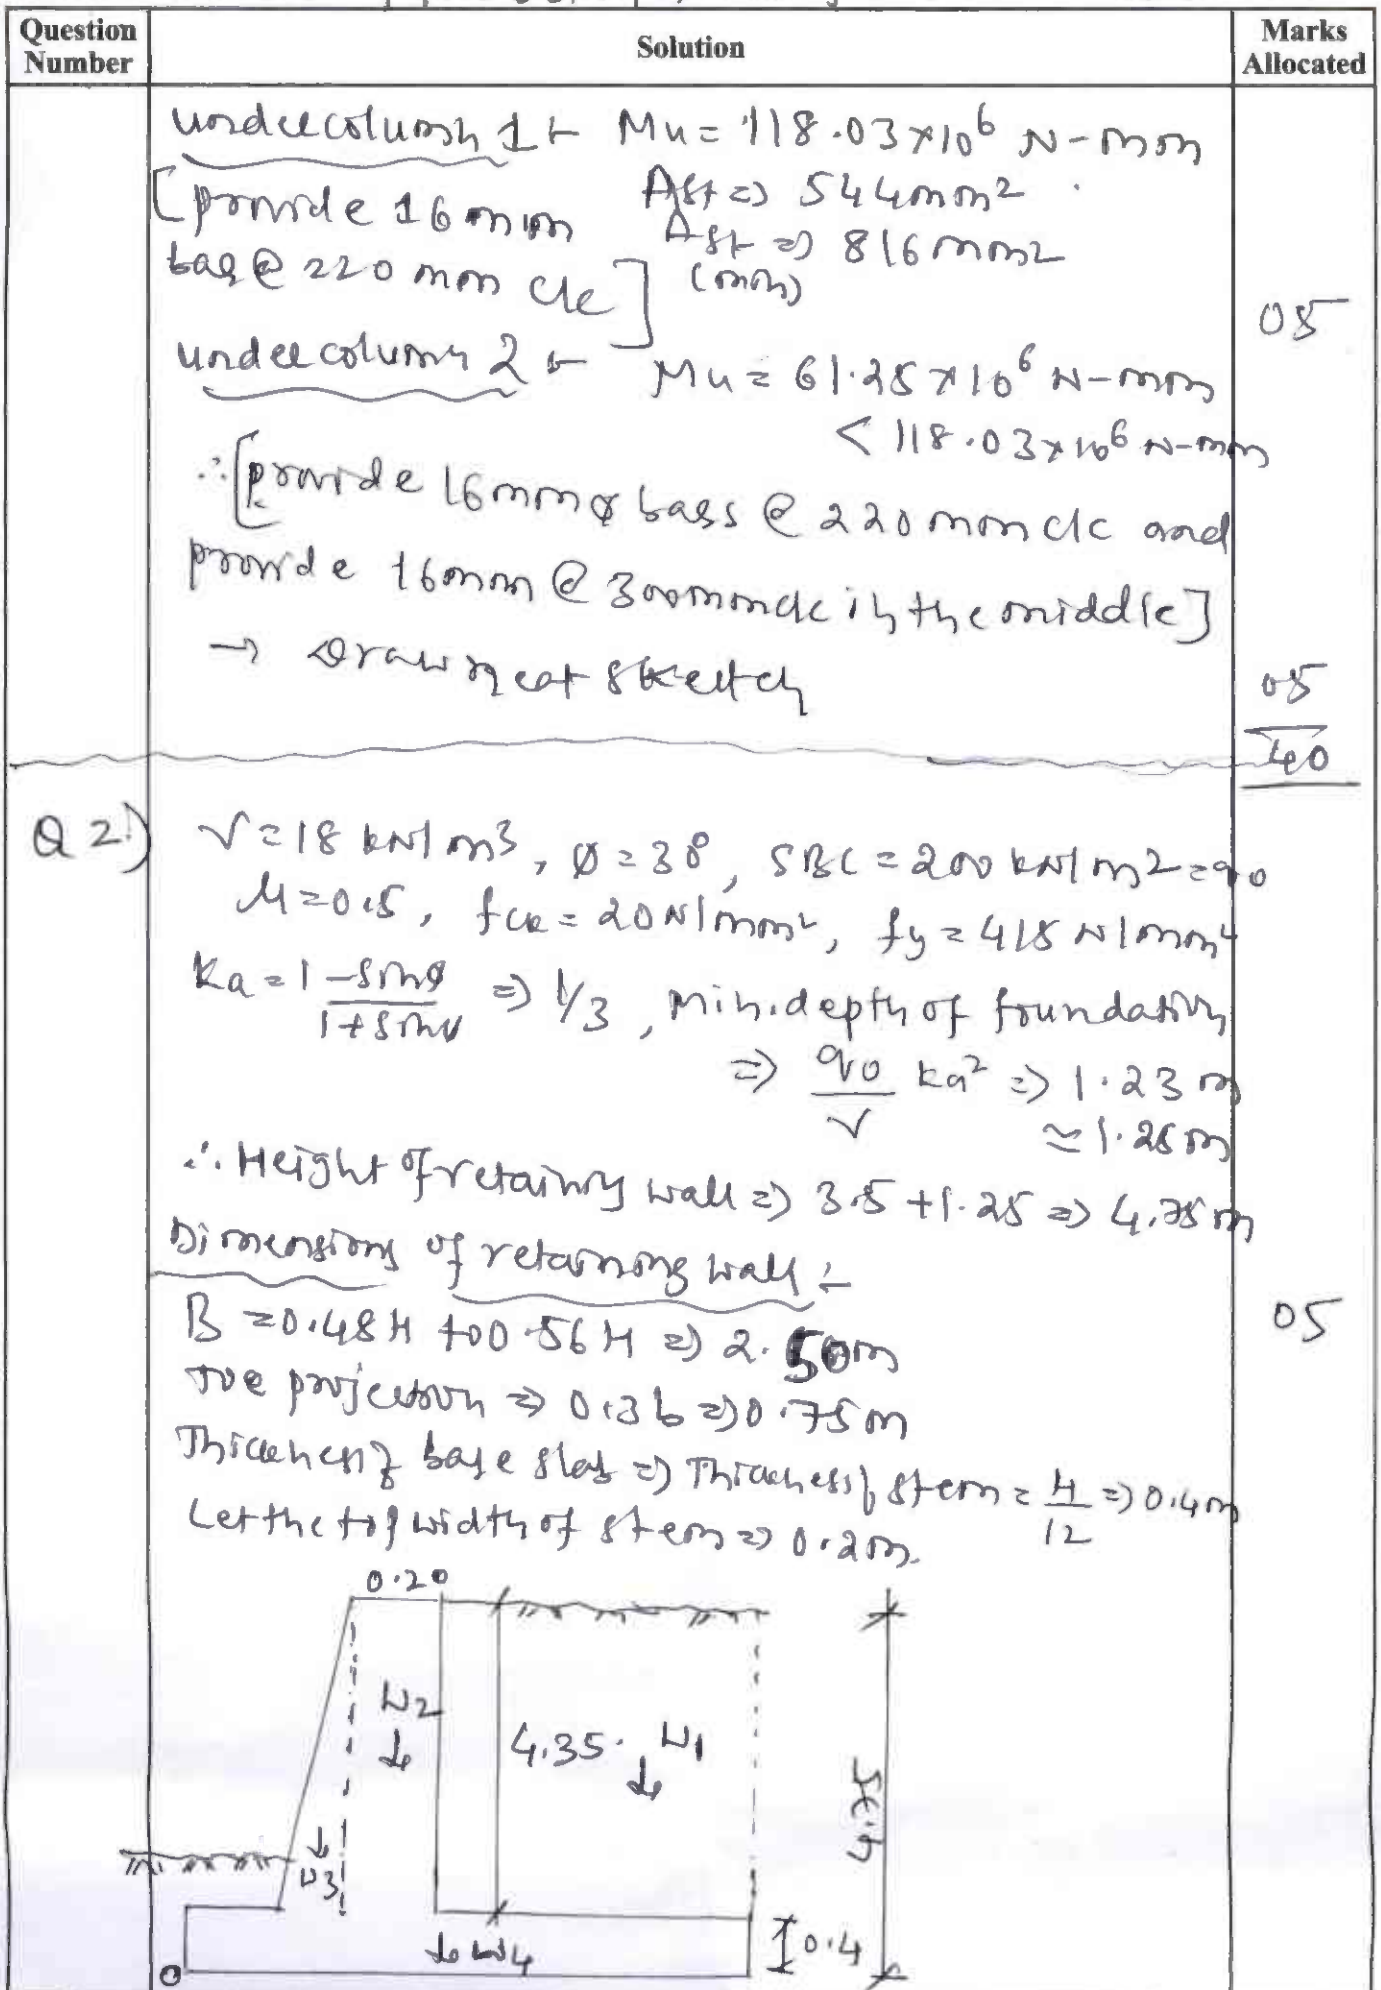 Question Number
Solution
Marks Allocated
under column 1 :- Mu = 118.03×10⁶ N-mm
[provide 16 mm Ast => 544mm²
bars @ 220 mm c/c] Ast => 816 mm²
(min)
05
under column 2 :- Mu = 61.25×10⁶ N-mm
< 118.03×10⁶ N-mm
∴ [provide 16mm φ bars @ 220 mm c/c and
provide 16mm @ 300mm c/c in the middle]
→ Draw neat sketch
05
40
Q 2.) γ = 18 kN/m³, Ø = 30°, SBC = 200 kN/m² = q₀
μ = 0.5, fck = 20 N/mm², fy = 415 N/mm²
Ka = 1-sinφ / 1+sinφ => 1/3, Min. depth of foundation
=> q₀/γ ka² => 1.23 m
≈ 1.25 m
∴ Height of retaining wall => 3.5 + 1.25 => 4.75 m
Dimensions of retaining wall :-
B = 0.48H to 0.56H => 2.50m
05
Toe projection => 0.3b => 0.75m
Thickness of base slab => Thickness of stem = H/12 => 0.4m
Let the top width of stem => 0.2m.
0.20
W2
4.35
W1
4.75
W3
W4
0.4
O